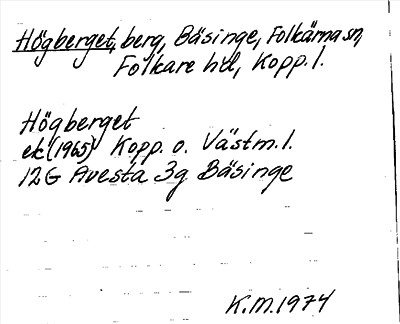 Högberget, berg, Bäsinge, Folkärna sn,
Folkare hd, Kopp. l.
Högberget
ek (1965) Kopp. o. Västm. l.
12G Avesta 3g Bäsinge
K.M. 1974